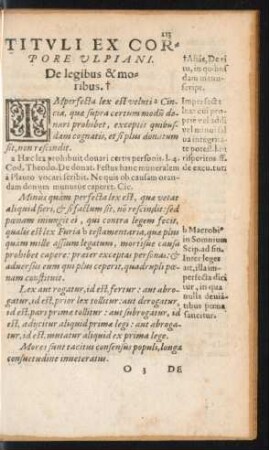 113
TITVLI EX COR-
PORE VLPIANI.
De legibus & mo-
ribus.†
IMperfecta lex est veluti a Cin-
cia, qua supra certum modũ do
nari prohibet, exceptis quibus-
dam cognatis, et si plus donatum
sit, non rescindit.
a Hæc lex prohibuit donari certis personis. l. 4.
Cod. Theodo. De donat. Festus hanc muneralem
à Plauto vocari scribit. Ne quis ob causam oran-
dam donum munusue caperet. Cic.
Minus quàm perfecta lex est, qua vetat
aliquid fieri, & si factum sit, nõ rescindit: sed
pœnam iniungit ei, qui contra legem fecit,
qualis est lex Furia b testamentaria, quæ plus
quàm mille assium legatum, mortisue causa
prohibet capere: præter exceptas personas: &
aduersus eum qui plus ceperit, quadrupli pœ-
nam constituit.
Lex aut rogatur, id est, fertur: aut abro-
gatur, id est, prior lex tollitur: aut derogatur,
id est, pars prima tollitur: aut subrogatur, id
est, adijcitur aliquid primæ legi: aut abroga-
tur, id est, mutatur aliquid ex prima lege.
Mores sunt tacitus consensus populi, longa
consuetudine inueteratus.
O 3 DE
†Aliâs, De
in, in quibus
dam manu-
script.
Imperfecta
lex
b Macrobi⁹
in Somnium
Scip. ad fin.
Inter leges
aut, illa im-
perfecta dici
tur, in qua
nulla deuiã-
tibus pœna
sancitur.